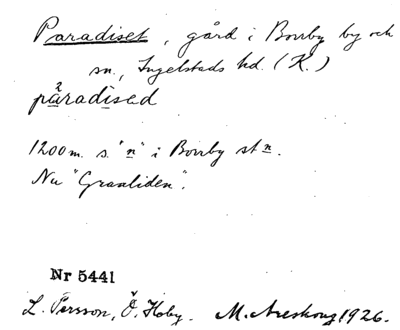 Paradiset, gård i Borrby by och
sn., Ingelstads hd. (K.)
paradised
1200 m. s. "n" i Borrby st n.
Nu "Granliden".
Nr 5441
L. Persson, Ö. Hoby. M. Areskoug 1926.